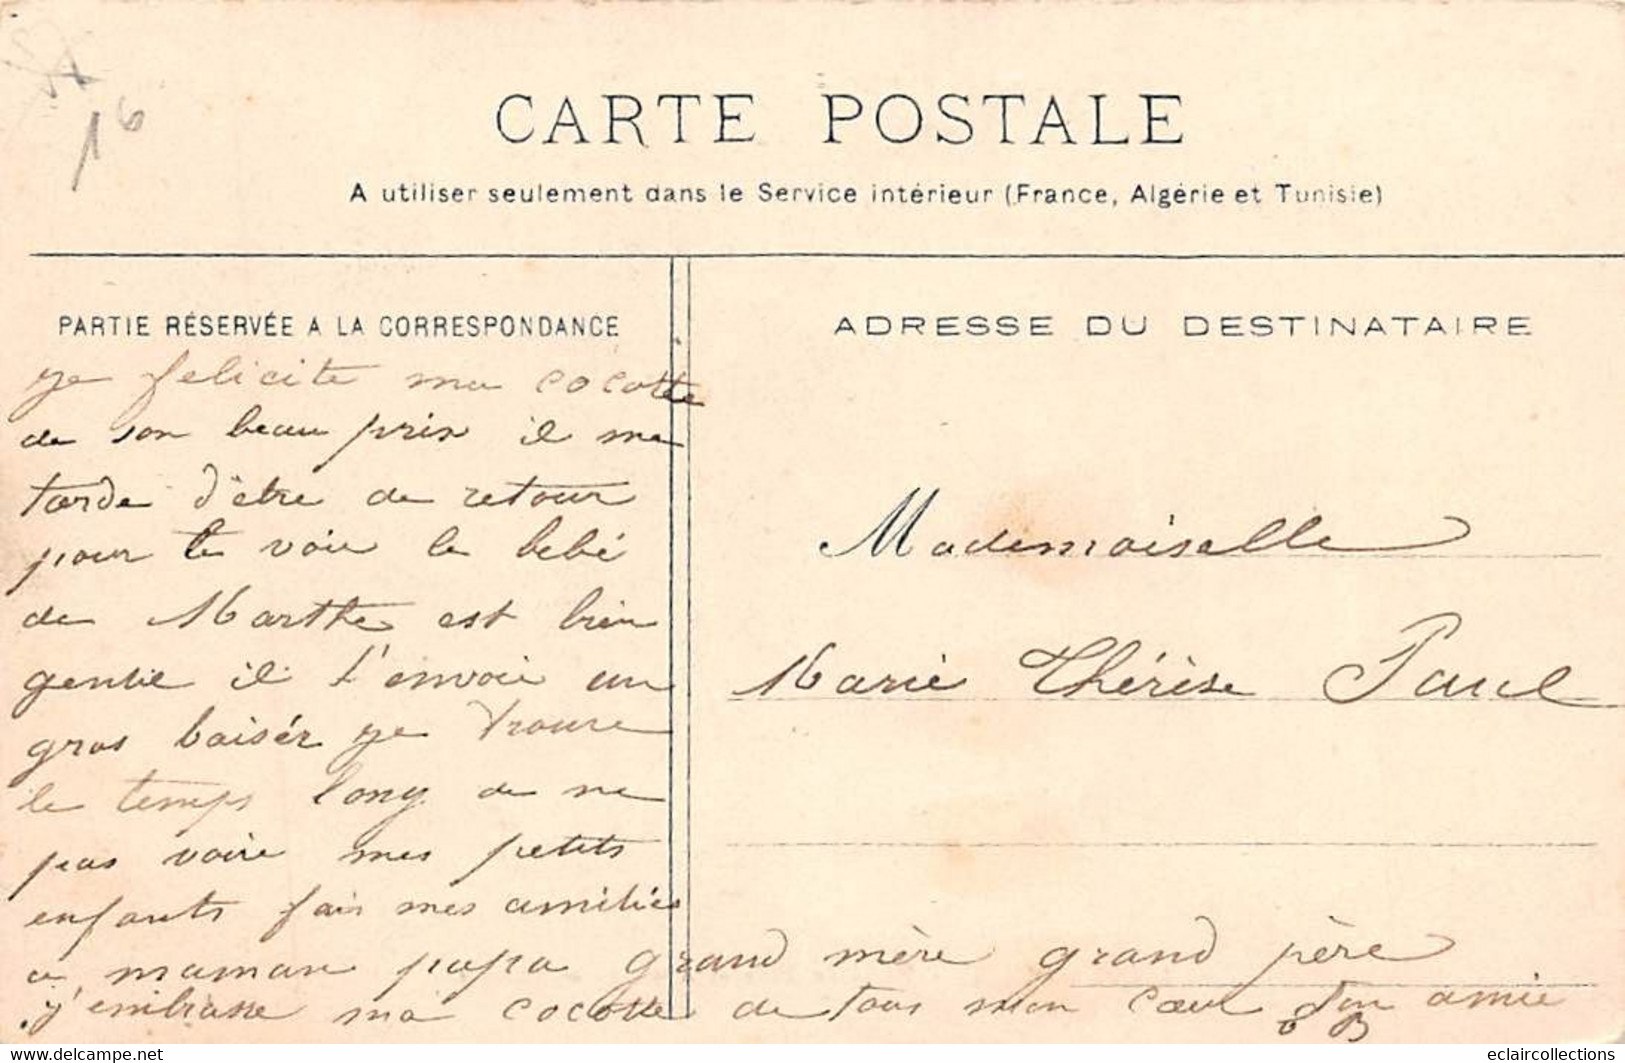 16
CARTE POSTALE
A utiliser seulement dans le Service intérieur (France, Algérie et Tunisie)
PARTIE RÉSERVÉE A LA CORRESPONDANCE
ge felicite ma cocotte
de son beau prix il me
tarde d'être de retour
pour te voir le bebé
de Marthe est bien
gentie il t'envoie un
gros baisér ge trouve
le temps long de ne
pas voire mes petits
enfants fais mes amitiés
a maman papa grand mère grand père
j'embrasse ma cocotte de tous mon cœur Ton amie
B
ADRESSE DU DESTINATAIRE
Mademoiselle
Marie Thérèse Paul
delcampe.net
eclaircollections